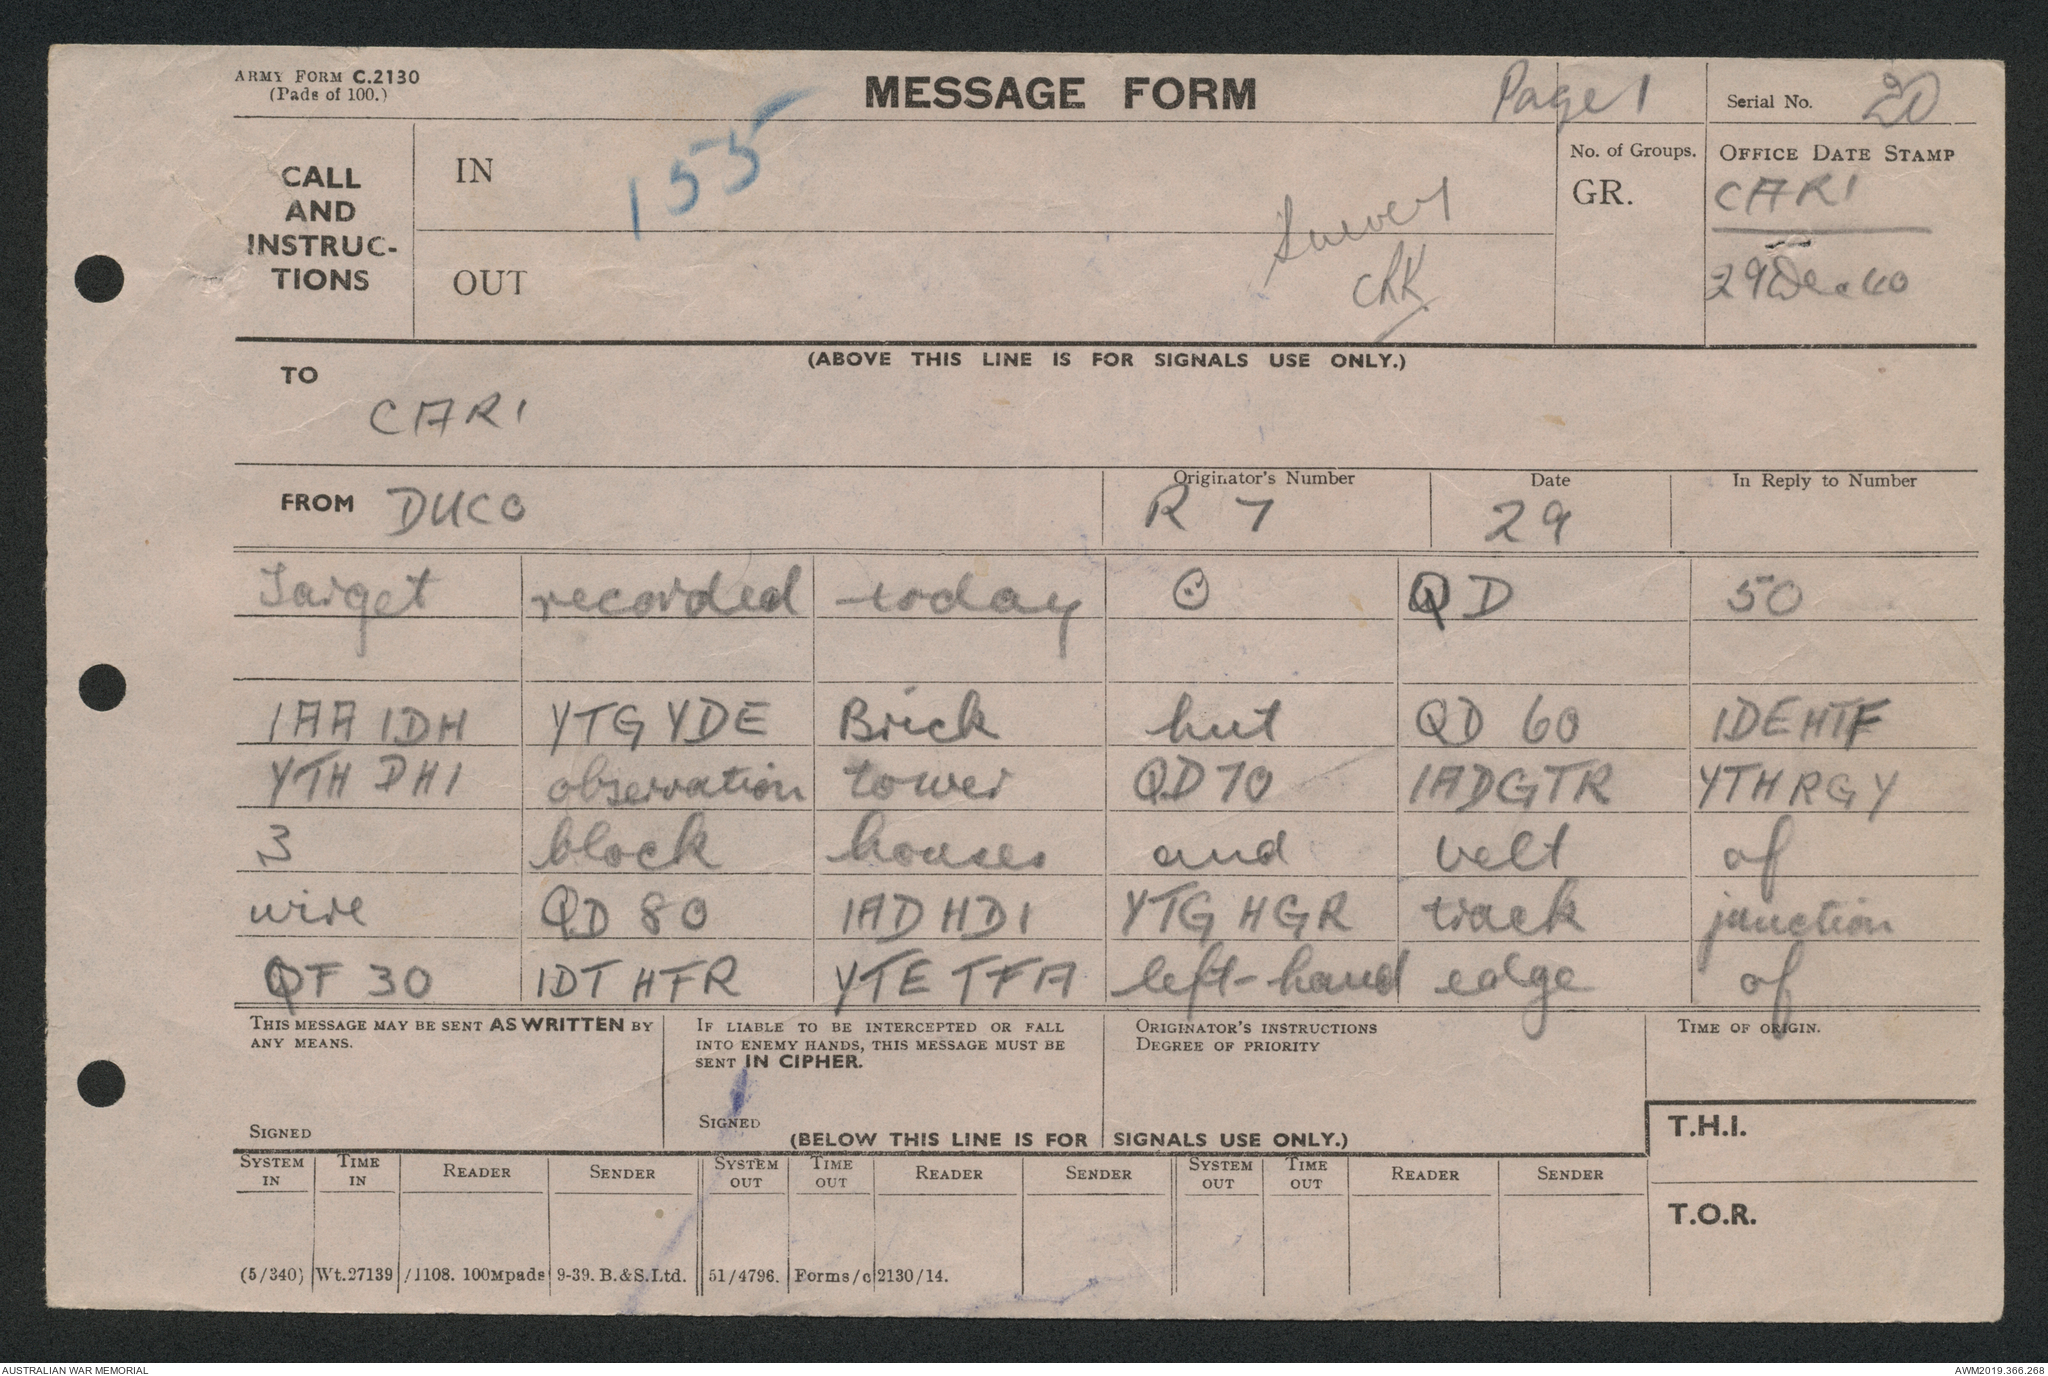 ARMY FORM C.2130
(Pads of 100.)
MESSAGE FORM
Page 1
Serial No. 20
155
CALL AND INSTRUC-TIONS
IN
OUT
CRK
No. of Groups.
GR.
OFFICE DATE STAMP
CARI
29 Dec 40
(ABOVE THIS LINE IS FOR SIGNALS USE ONLY.)
TO
CARI
FROM DUCO
Originator's Number
R 7
Date
29
In Reply to Number
Target recorded today ⊙ QD 50
IAA IDH YTG YDE Brick hut QD 60 IDEHTF
YTH DHI observation tower QD 70 IADGTR YTHRGY
3 block houses and velt of
wire QD 80 IAD HDI YTG HGR track junction
QF 30 IDT HFR YTE TFA left-hand edge of
THIS MESSAGE MAY BE SENT AS WRITTEN BY
ANY MEANS.
SIGNED
IF LIABLE TO BE INTERCEPTED OR FALL
INTO ENEMY HANDS, THIS MESSAGE MUST BE
SENT IN CIPHER.
SIGNED
ORIGINATOR'S INSTRUCTIONS
DEGREE OF PRIORITY
TIME OF ORIGIN.
(BELOW THIS LINE IS FOR SIGNALS USE ONLY.)
T.H.I.
SYSTEM IN TIME IN READER SENDER SYSTEM OUT TIME OUT READER SENDER SYSTEM OUT TIME OUT READER SENDER
T.O.R.
(5/340) Wt.27139 /1108. 100Mpads 9-39. B.&S.Ltd. 51/4796. Forms/c2130/14.
AUSTRALIAN WAR MEMORIAL
AWM2019.366.268